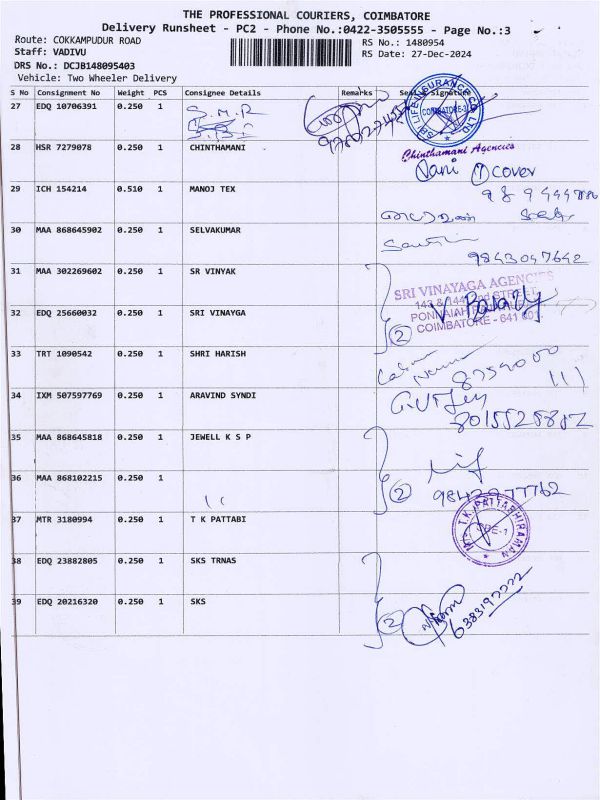 THE PROFESSIONAL COURIERS, COIMBATORE
Delivery Runsheet - PC2 - Phone No.:0422-3505555 - Page No.:3
Route: COKKAMPUDUR ROAD
RS No.: 1480954
Staff: VADIVU
RS Date: 27-Dec-2024
DRS No.: DCJB148095403
Vehicle: Two Wheeler Delivery
S No Consignment No Weight PCS Consignee Details Remarks Seal & Signature
27 EDQ 10706391 0.250 1 S.M.R
COIMBATORE
28 HSR 7279078 0.250 1 CHINTHAMANI
Chinthamani Agencies
Vani 1 cover
29 ICH 154214 0.510 1 MANOJ TEX
30 MAA 868645902 0.250 1 SELVAKUMAR
9843047642
31 MAA 302269602 0.250 1 SR VINYAK
SRI VINAYAGA AGENCIES
COIMBATORE - 641 001.
2
32 EDQ 25660032 0.250 1 SRI VINAYGA
33 TRT 1090542 0.250 1 SHRI HARISH
34 IXM 507597769 0.250 1 ARAVIND SYNDI
35 MAA 868645818 0.250 1 JEWELL K S P
36 MAA 868102215 0.250 1
2
37 MTR 3180994 0.250 1 T K PATTABI
T.K. PATTABHIRAMAN
38 EDQ 23882805 0.250 1 SKS TRNAS
39 EDQ 20216320 0.250 1 SKS
2
6383192222